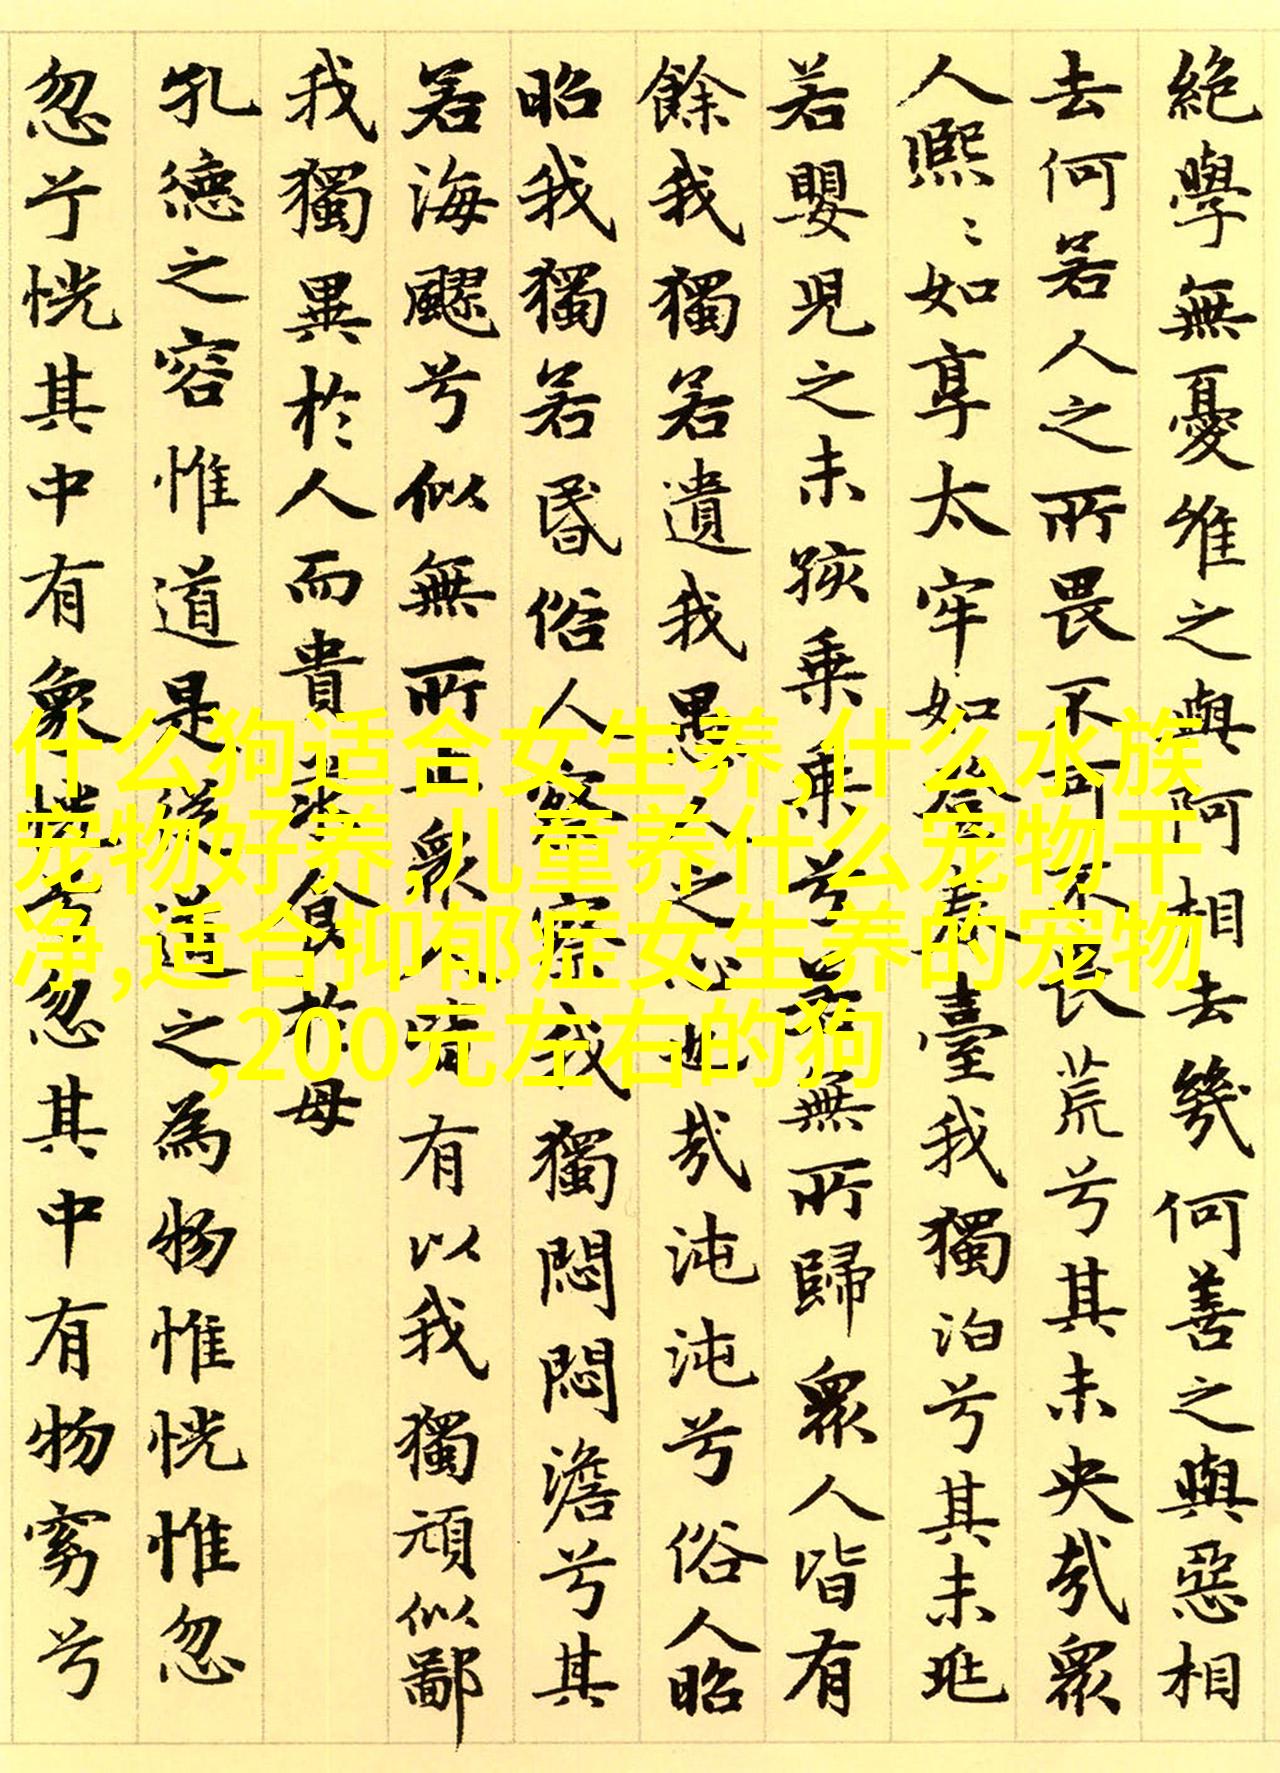 絶學無憂唯之與阿相去幾何善之與惡相
去何若人之所畏不可不畏荒兮其未央哉眾
人熙〻如享太牢如登春臺我獨泊兮其未兆
若嬰兒之未孩乗乗兮若無所歸眾人皆有
餘我獨若遺我愚人之心也哉沌沌兮俗人昭
昭我獨若昏俗人察察我獨悶悶澹兮其
若海飂兮似無所止眾人皆有以我獨頑似鄙
我獨異於人而貴求食於母
孔德之容惟道是從道之為物惟恍惟忽
忽兮恍其中有象恍兮忽其中有物窈兮
什么狗适合女生养,什么水族
宠物好养,儿童养什么宠物干
净,适合抑郁症女生养的宠物
,200元左右的狗